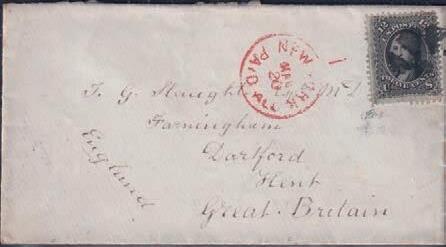 NEW YORK
PAID ALL
MAR
12 12
T. G. Slaught M D
Farningham
Dartford
Kent
Great Britain
England